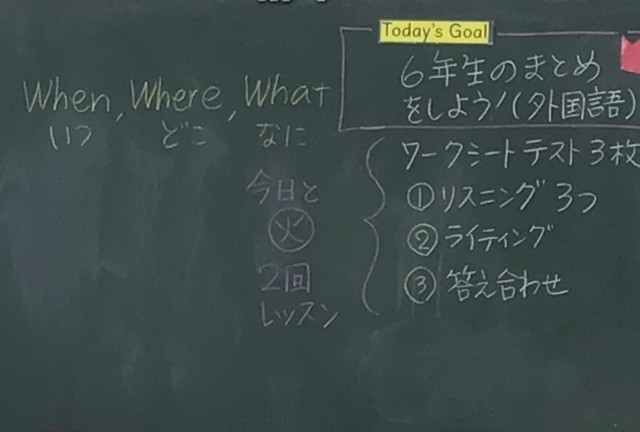 Today's Goal
6年生のまとめ
をしよう!(外国語)
When, Where, What
いつ どこ なに
今日と
火
2回
レッスン
ワークシートテスト3枚
①リスニング 3つ
②ライティング
③答え合わせ